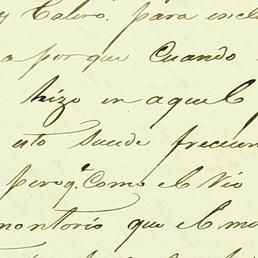 y Calvo. para incl
a porque Cuando
hizo en aquel
esto sucede frecuen
peroq.e Como el Vio
montorio que el mu